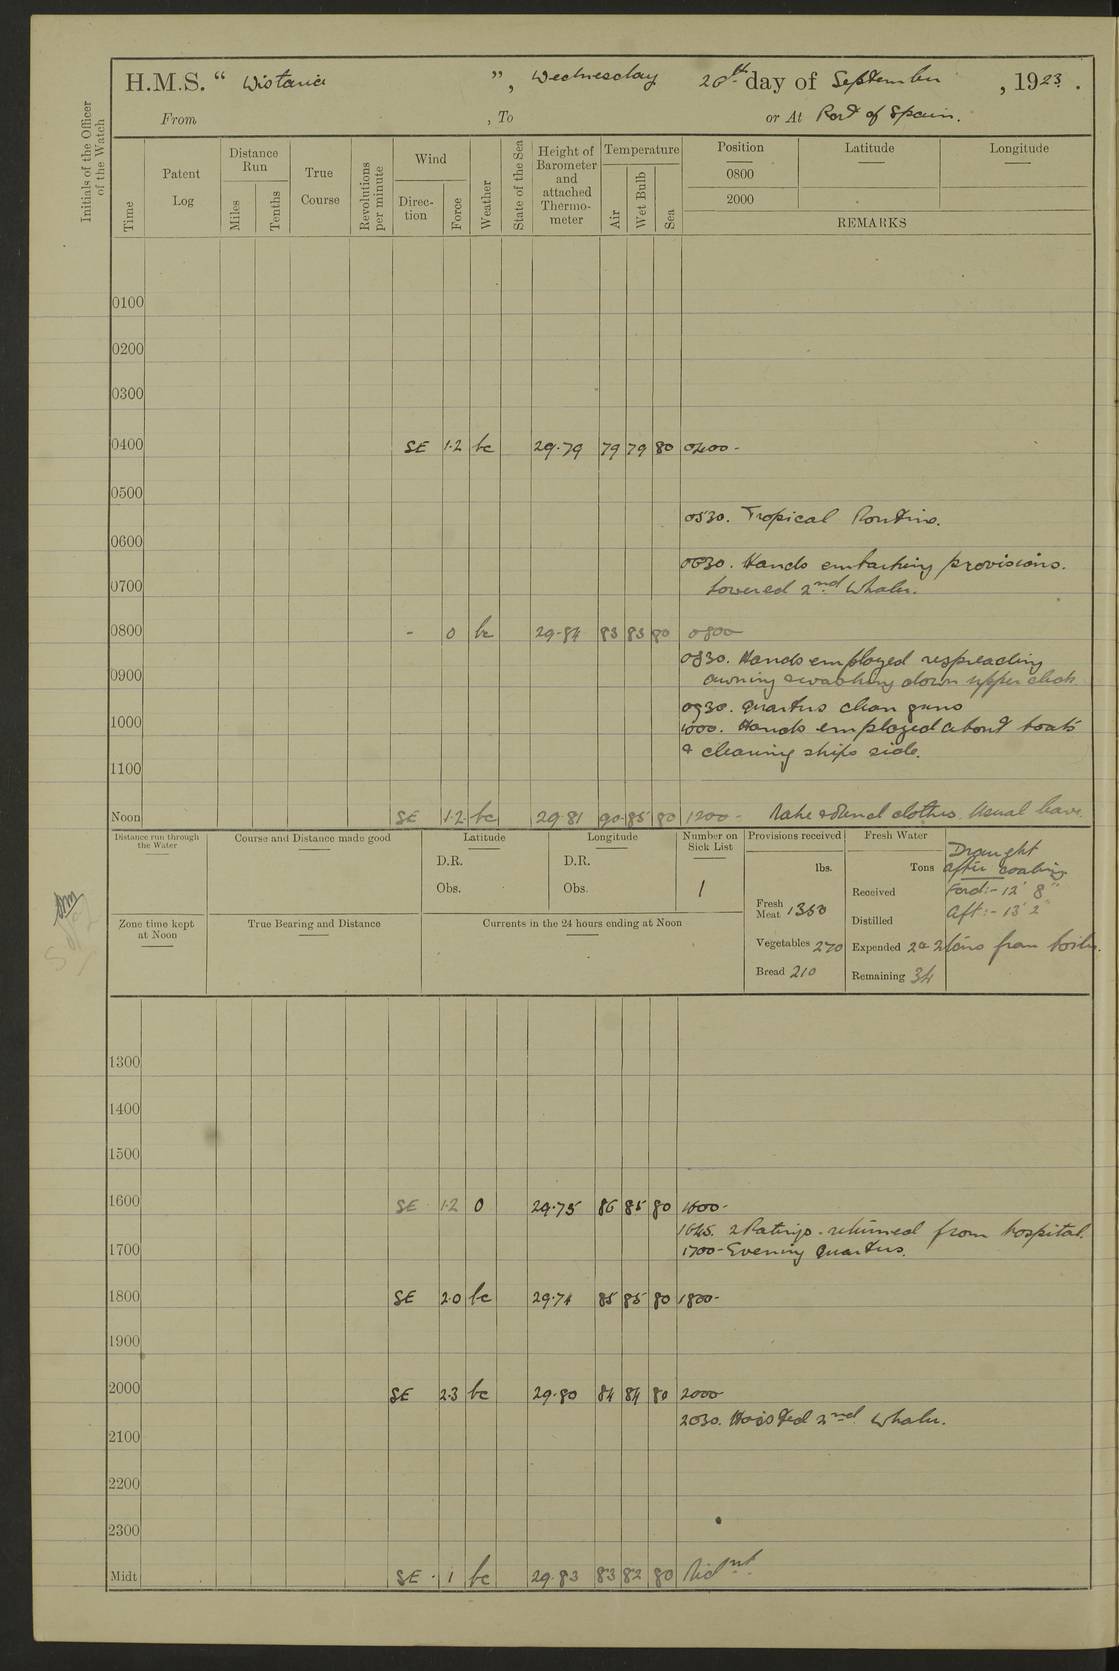 H.M.S. “ Wistaria ”, Wednesday 26th day of September, 1923.
From , To or At Port of Spain.
Initials of the Officer of the Watch
Time
Patent Log
Distance Run
Miles
Tenths
True Course
Revolutions per minute
Wind
Direc-tion
Force
Weather
State of the Sea
Height of Barometer and attached Thermo-meter
Temperature
Air
Wet Bulb
Sea
Position
0800
2000
Latitude
Longitude
REMARKS
0100
0200
0300
0400 SE 1.2 bc 29.79 79 79 80 0400-
0500
0530. Tropical Routine.
0600
0630. Hands embarking provisions.
0700
Lowered 2nd Whaler.
0800 - 0 bc 29.84 83 83 80 0800
0830. Hands employed respreading
0900
awning & washing down upper deck
0930. Quarters clean guns
1000
1000. Hands employed about boats
& cleaning ships side.
1100
Noon SE 1.2 bc 29.81 90 85 80 1200- Make & Mend clothes. Usual leave.
Distance run through the Water
Course and Distance made good
Latitude
D.R.
Obs.
Longitude
D.R.
Obs.
Number on Sick List
1
Provisions received
lbs.
Fresh Meat 1350
Vegetables 270
Bread 210
Fresh Water
Tons
Received
Distilled
Expended 2 & 2 tons from boiler.
Remaining 34
Draught
after coaling
Ford:- 12' 8"
Aft:- 13' 2"
Zone time kept at Noon
True Bearing and Distance
Currents in the 24 hours ending at Noon
1300
1400
1500
1600 SE 1.2 0 29.75 86 85 80 1600-
1645. 2 Ratings returned from hospital.
1700 1700- Evening Quarters.
1800 SE 2.0 bc 29.74 85 85 80 1800-
1900
2000 SE 2.3 bc 29.80 84 84 80 2000
2030. Hoisted 2nd Whaler.
2100
2200
2300
Midt SE 1 bc 29.83 83 82 80 Midnt